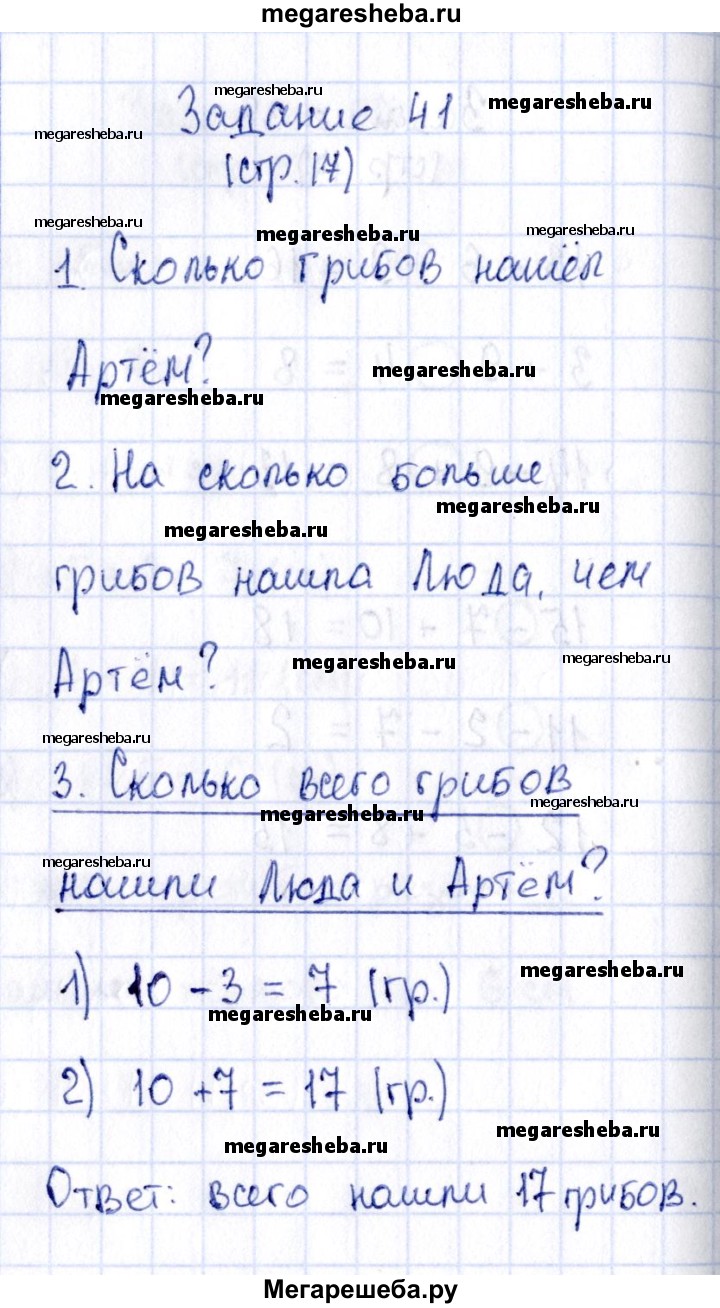 megaresheba.ru
megaresheba.ru
Задание 41
megaresheba.ru
megaresheba.ru
(стр. 17)
megaresheba.ru
megaresheba.ru
megaresheba.ru
1. Сколько грибов нашёл
Артём?
megaresheba.ru
megaresheba.ru
2. На сколько больше
megaresheba.ru
megaresheba.ru
грибов нашла Люда, чем
Артём?
megaresheba.ru
megaresheba.ru
megaresheba.ru
3. Сколько всего грибов
megaresheba.ru
megaresheba.ru
megaresheba.ru
нашли Люда и Артём?
1) 10 - 3 = 7 (гр.)
megaresheba.ru
megaresheba.ru
2) 10 + 7 = 17 (гр.)
megaresheba.ru
megaresheba.ru
Ответ: всего нашли 17 грибов.
Мегарешеба.ру